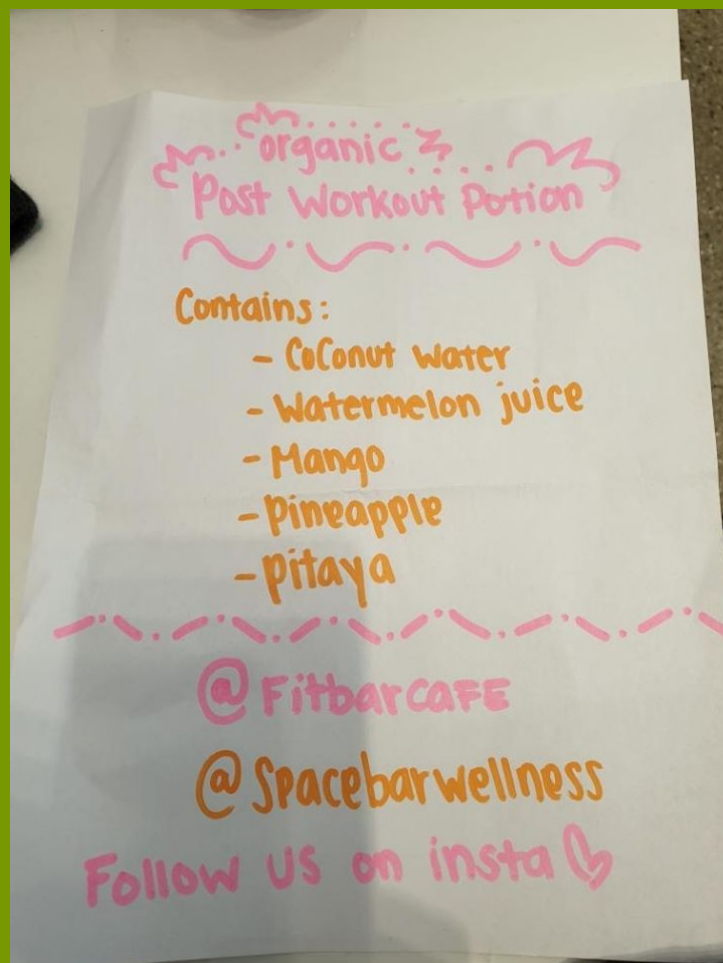 organic
Post Workout Potion
Contains:
- Coconut water
- Watermelon juice
- Mango
- Pineapple
- Pitaya
@FitbarCAFE
@Spacebarwellness
Follow us on insta